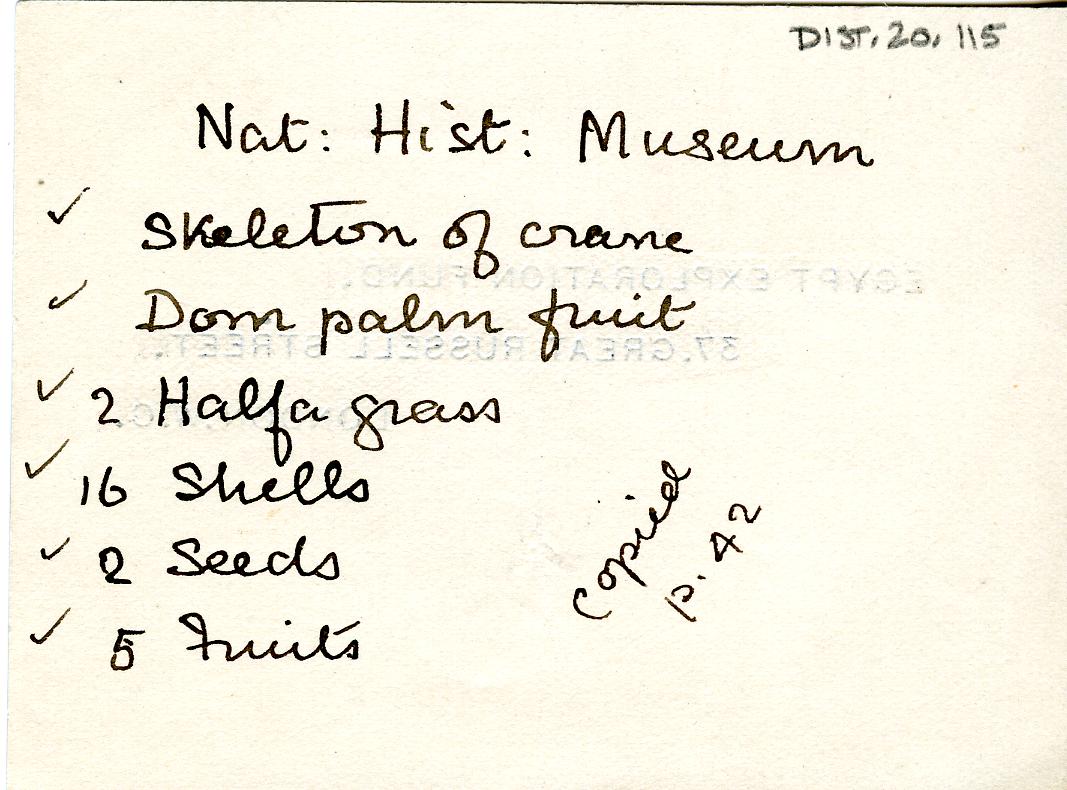 DIST. 20. 115
Nat: Hist: Museum
✓ Skeleton of crane
EGYPT EXPLORATION FUND.
✓ Dom palm fruit
37. GREAT RUSSELL STREET.
✓ 2 Halfa grass
✓ 16 Shells
✓ 2 Seeds
✓ 5 Fruits
Copied
p. 42